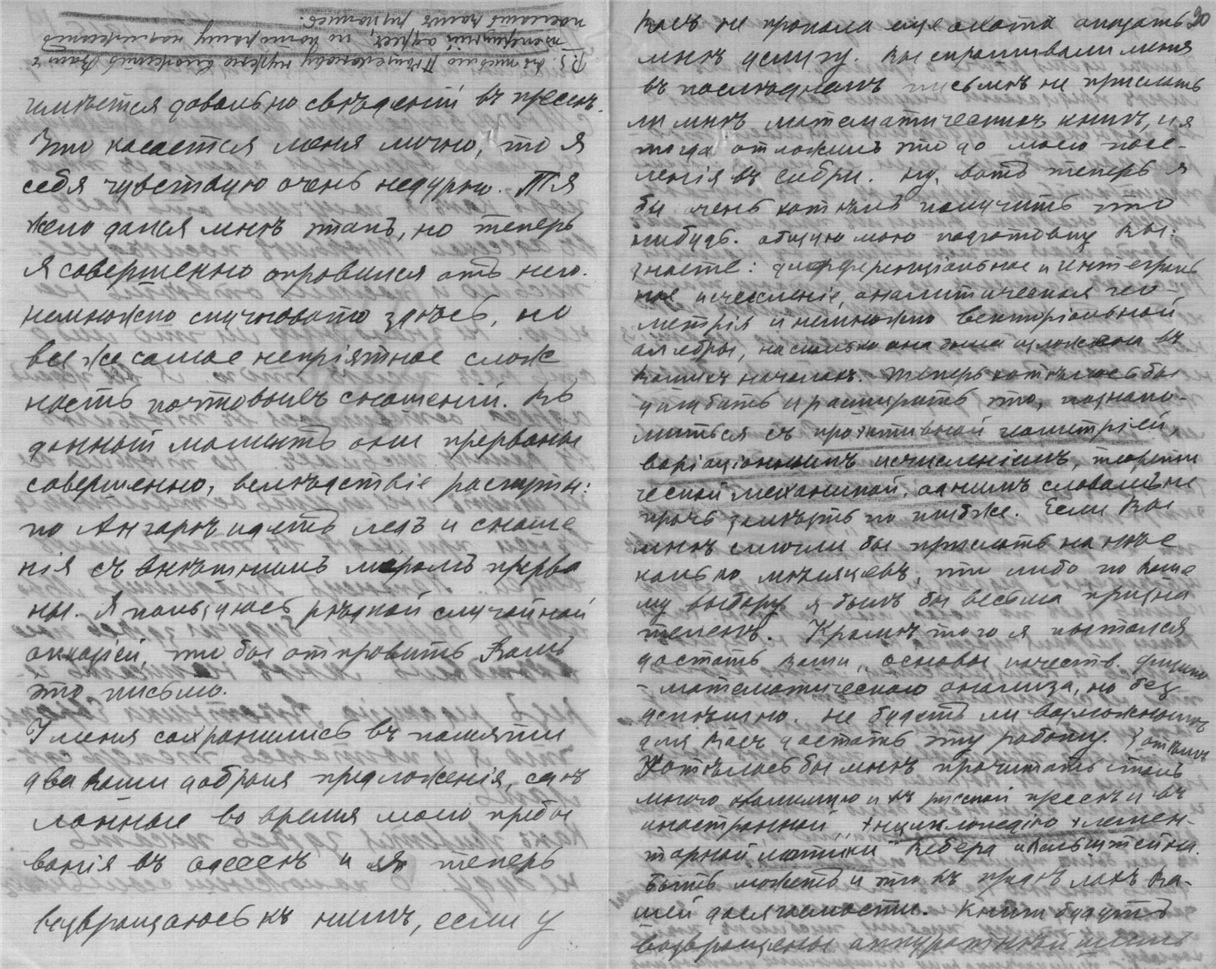 P.S. На письмо П. нужно вложить Вашъ
теперешній адресъ, по которому надлежитъ
послать Вамъ рукопись.
имѣется довольно свѣдѣній въ прессѣ.
Что касается меня лично, то я
себя чувствую очень недурно. Тя
жело дался мнѣ этапъ, но теперь
я совершенно оправился отъ него.
Немножко скучновато здѣсь, но
все же самое непріятное слож
ность почтовыхъ сношеній. Въ
данный моментъ они прерваны
совершенно, вслѣдствіе распути:
по Ангарѣ идетъ ледъ и сноше
нія съ внѣшнимъ міромъ прерва
ны. Я пользуюсь рѣдкой случайной
оказіей, что бы отправить Вамъ
это письмо.
У меня сохранились въ памяти
два Ваши добрыя предложенія, сдѣ
ланныя во время моего пребы
ванія въ Одессѣ и я теперь
возвращаюсь къ нимъ, если у
30
Васъ не пропала еще охота оказать
мнѣ услугу. Вы спрашивали меня
въ послѣднемъ письмѣ не прислать
ли мнѣ математическихъ книгъ, и я
тогда отложилъ это до моего посе-
ленія въ Сибри. Ну, вотъ теперь я
бы очень хотѣлъ получить что
нибудь. Общую мою подготовку Вы
знаете: дифференціальное и интеграль
ное исчисленіе, аналитическая гео
метрія и немножко векторіальной
алгебры, насколько она была изложена въ
Вашихъ началахъ. Теперь хотѣлось бы
углубить и расширить это, познако-
миться съ проэктивной геометріей,
варіаціоннымъ исчисленіемъ, теорети
ческой механикой, однимъ словомъ не
прочь залѣзть по глубже. Если Вы
мнѣ смогли бы прислать на нѣс
колько мѣсяцевъ, что либо по Ваше
му выбору я былъ бы весьма призна
теленъ. Кромѣ того я пытался
достать Ваши „основы качеств. физико
-математическаго анализа, но без
успѣшно. Не будетъ ли возможнымъ
для Васъ достать эту работу.
Хотѣлось бы мнѣ прочитать столь
много хвалимую и въ русской прессѣ и въ
иностранной „Энциклопедію элемен-
тарной матики" Вебера и Вельштейна.
Быть можетъ и это въ предѣлахъ Ва-
шей досягаемости. Книги будутъ
возвращены аккуратнѣйшимъ